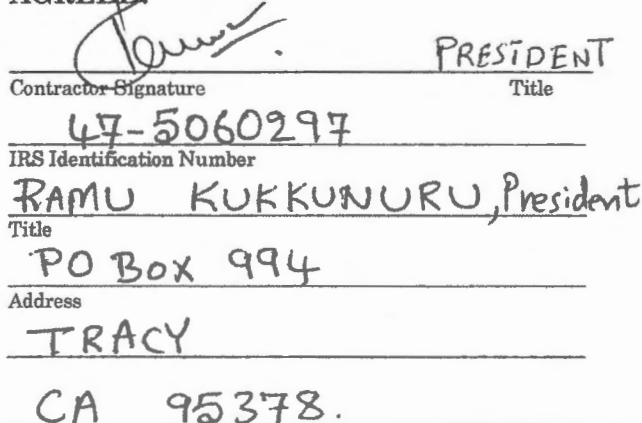 AGREED:
PRESIDENT
Contractor Signature Title
47-5060297
IRS Identification Number
RAMU KUKKUNURU, President
Title
PO BOX 994
Address
TRACY
CA 95378.